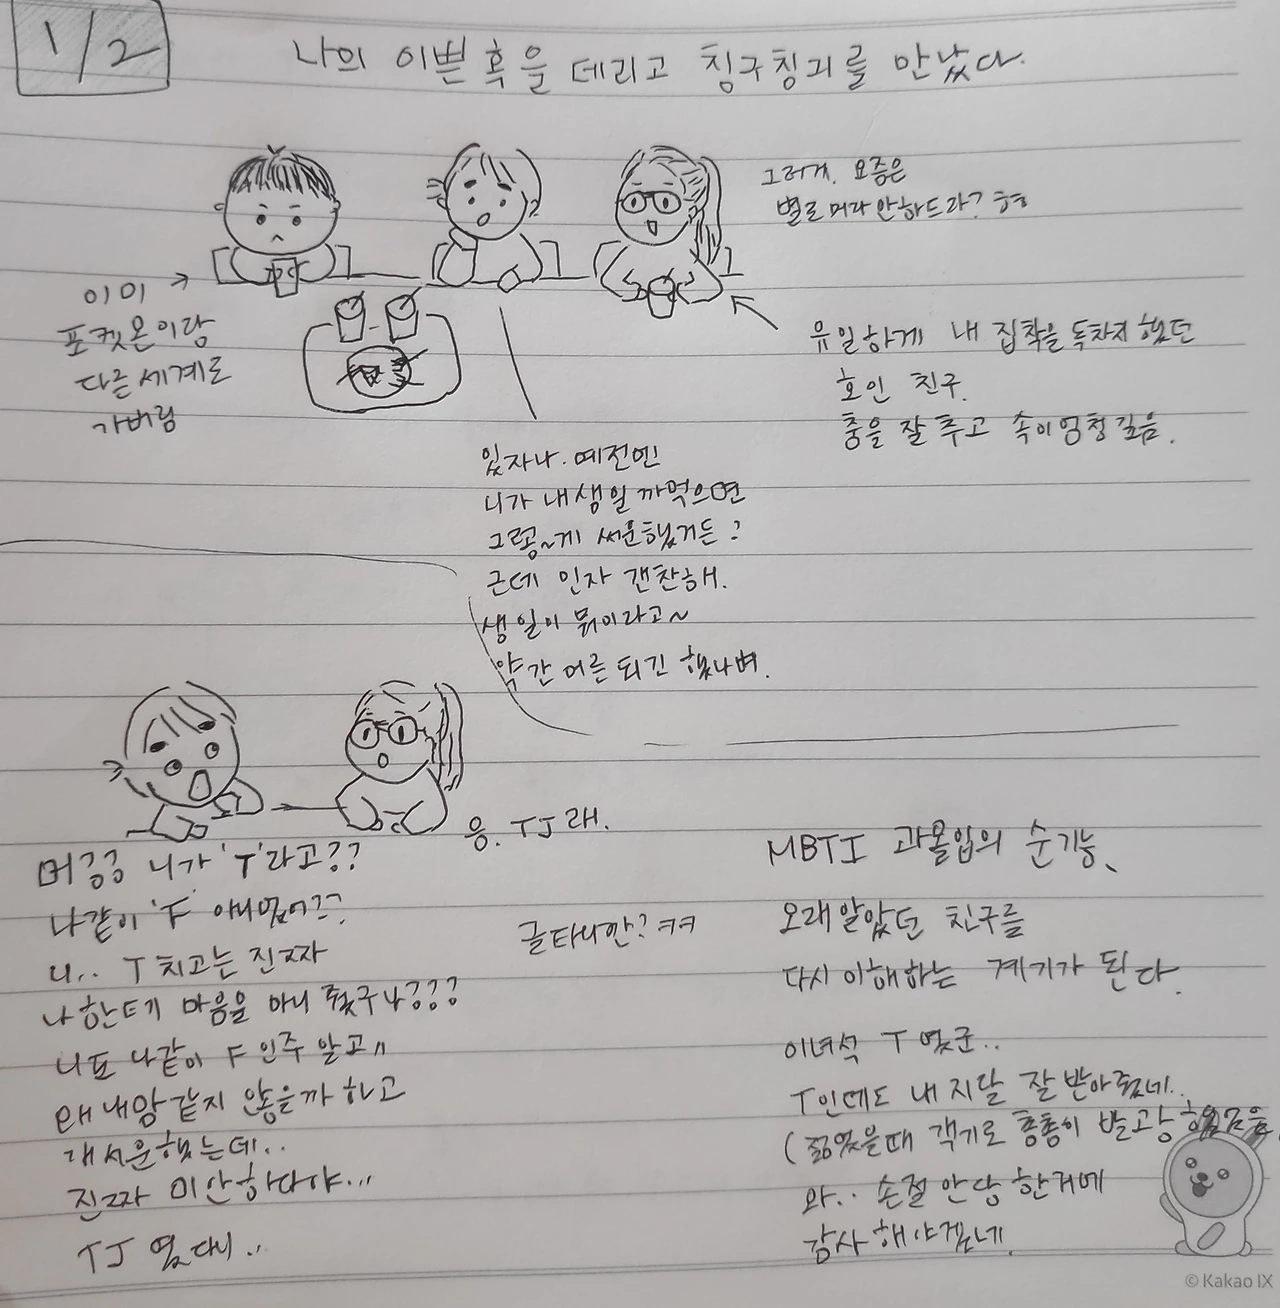 1/2
나의 이쁜 혹을 데리고 칭구칭긔를 만났다.
그러게. 요즘은
별로 머라 안하드라? ㅎㅎ
이미
포켓몬이랑
다른 세계로
가버림
유일하게 내 집착을 독차지 했던
호인 친구.
춤을 잘 추고 속이 엄청 깊음.
있자나. 예전엔
니가 내 생일 까먹으면
그렇~게 써운했거든?
근데 인자 갠찬해.
생일이 뭐이라고~
약간 어른 되긴 했나벼.
응. TJ래.
머??? 니가 'T'라고??
나같이 'F' 아니였어??
니.. T 치고는 진ㅉ자
나한테 마음을 마니 줬구나???
니도 나같이 F인주 알고
왜 내맘 같지 않을까 하고
개 서운했는데..
진ㅉ자 미안하다야...
TJ 였다니..
글타니깐? ㅋㅋ
MBTI 과몰입의 순기능.
오래 알았던 친구를
다시 이해하는 계기가 된다.
이녀석 T 였군..
T인데도 내 지랄 잘 받아줬네..
(젊었을때 객기로 총총이 발광 했음
와.. 손절 안당한거에
감사해야겠네.
© Kakao IX